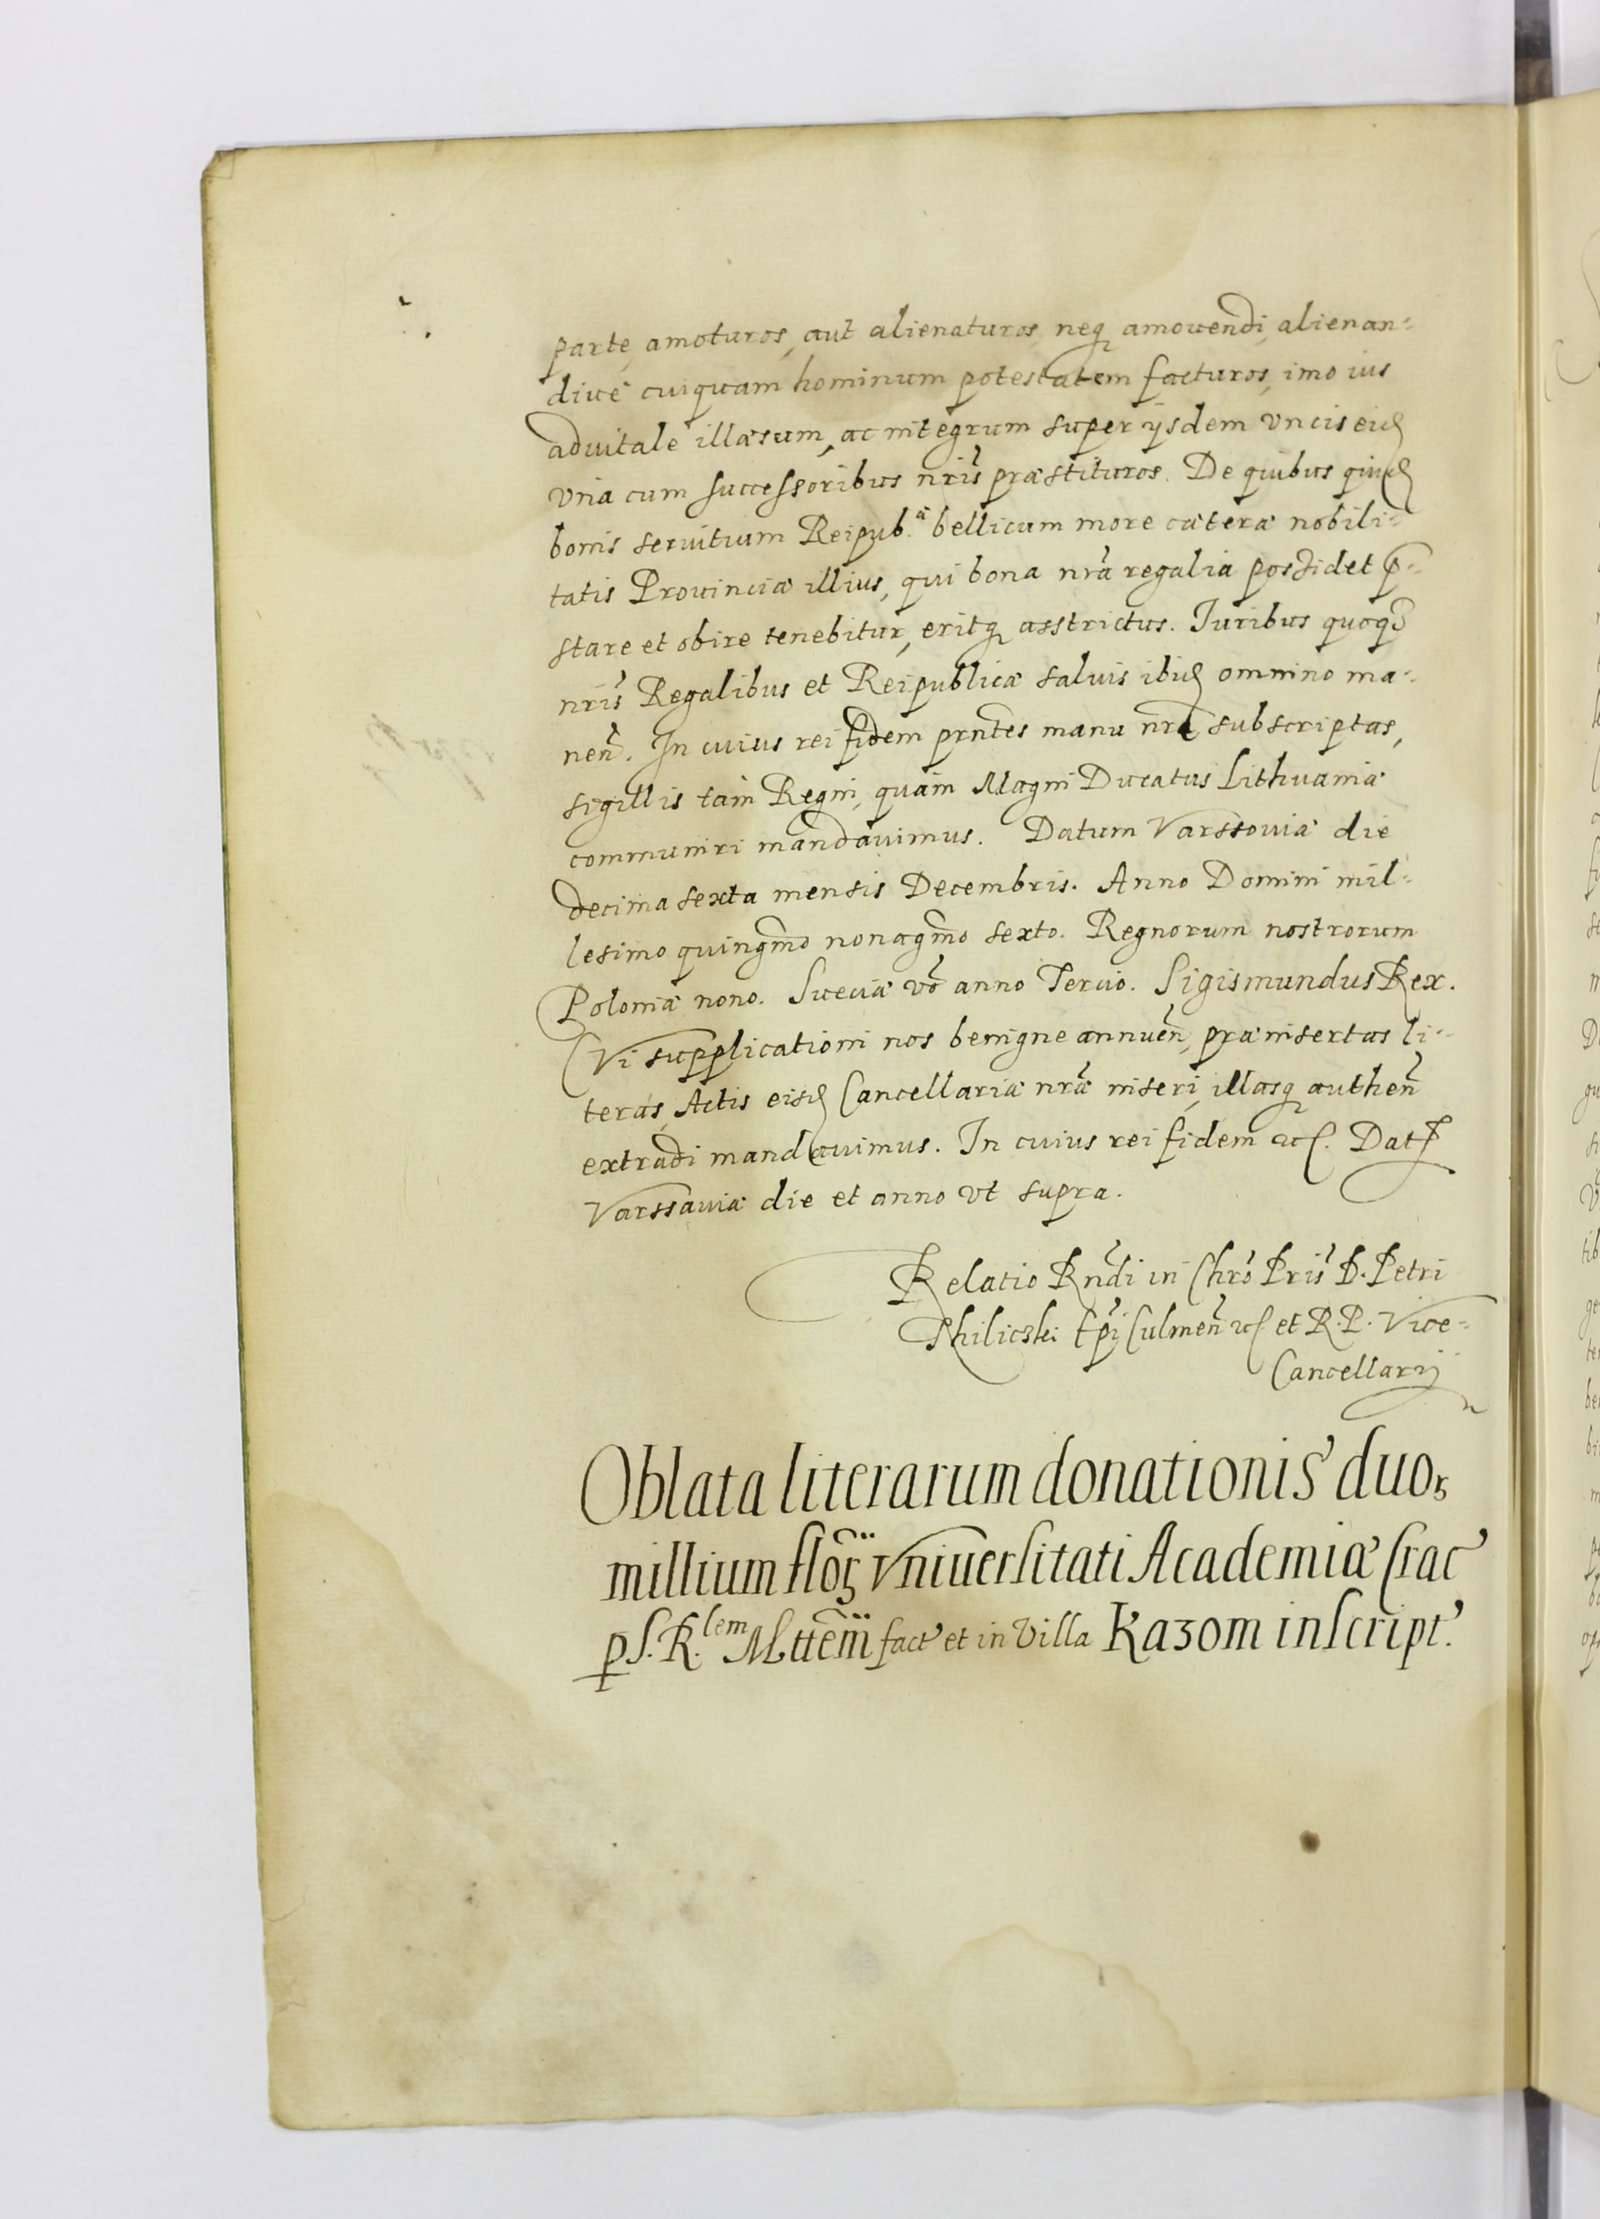 parte, amoturos, aut alienaturos, neq amouendi, alienan=
diue cuiquam hominum potestatem facturos, imo ius
aduitale illæsum, ac integrum super ijsdem vncis eid
vna cum successoribus nris præstituros. De quibus quid
bonis seruitium Reipub. bellicum more cæteræ nobili=
tatis Prouinciæ illius, qui bona nra regalia possidet p=
stare et obire tenebitur, eritq asstrictus. Iuribus quoq
nris Regalibus et Reipublicæ saluis ibid omnino ma=
nen. In cuius rei fidem prntes manu nra subscriptas,
sigillis tam Regni, quam Magni Ducatus Lithuaniæ
communiri mandauimus. Datum Varssouiæ die
decima sexta mensis Decembris. Anno Domini mil=
lesimo quingmo nonagmo sexto. Regnorum nostrorum
Poloniæ nono. Sueciæ vo anno Tercio. Sigismundus Rex.
Vi supplicationi nos benigne annuen, præinsertas li=
teras, Actis eisd Cancellariæ nræ inseri, illasq authen
extradi mandauimus. In cuius rei fidem etc. Dat
Varssauiæ die et anno vt supra.
Relatio Rndi in Chro Pris D. Petri
Thilicski Epi Culmen etc et R. P. Vice=
Cancellarij
Oblata literarum donationis duor
millium flor Vniuersitati Academiæ Crac
p S. R.lem Mttem fact et in Villa Kazom inscript.